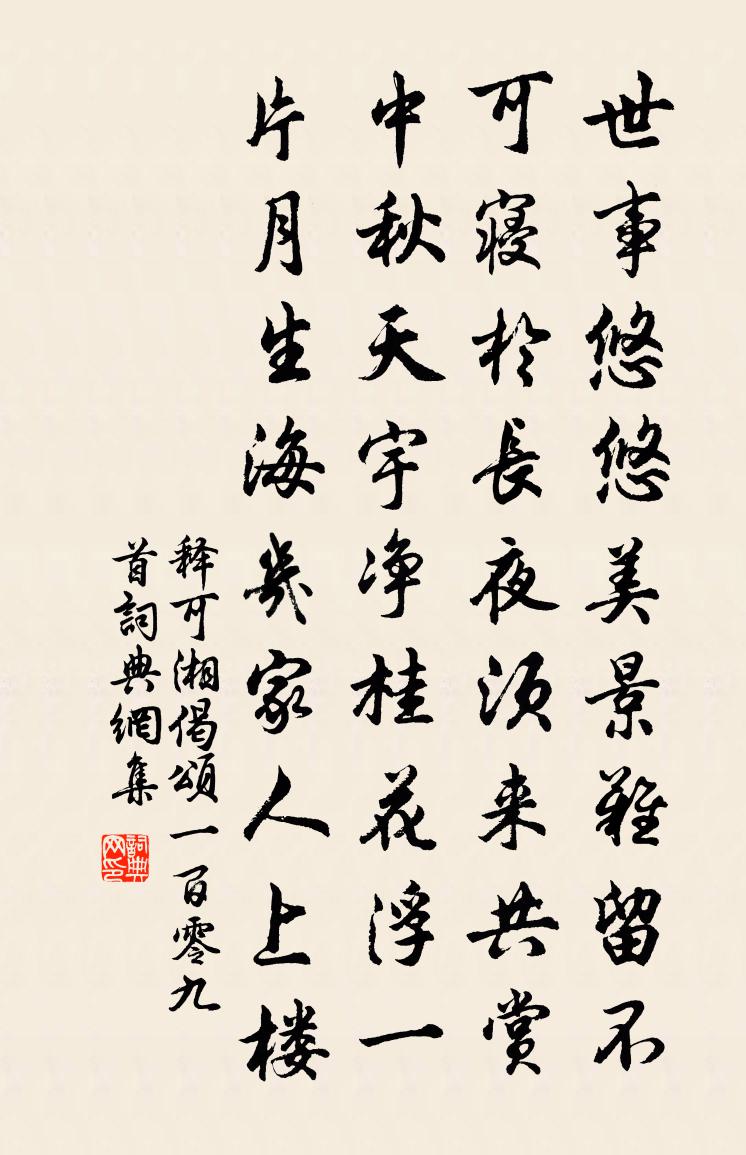 世事悠悠美景難留不
可寝於長夜须来共赏
中秋天宇净桂花浮一
片月生海幾家人上楼
释可湘偈頌一百零九
首詞典網集
詞典网印